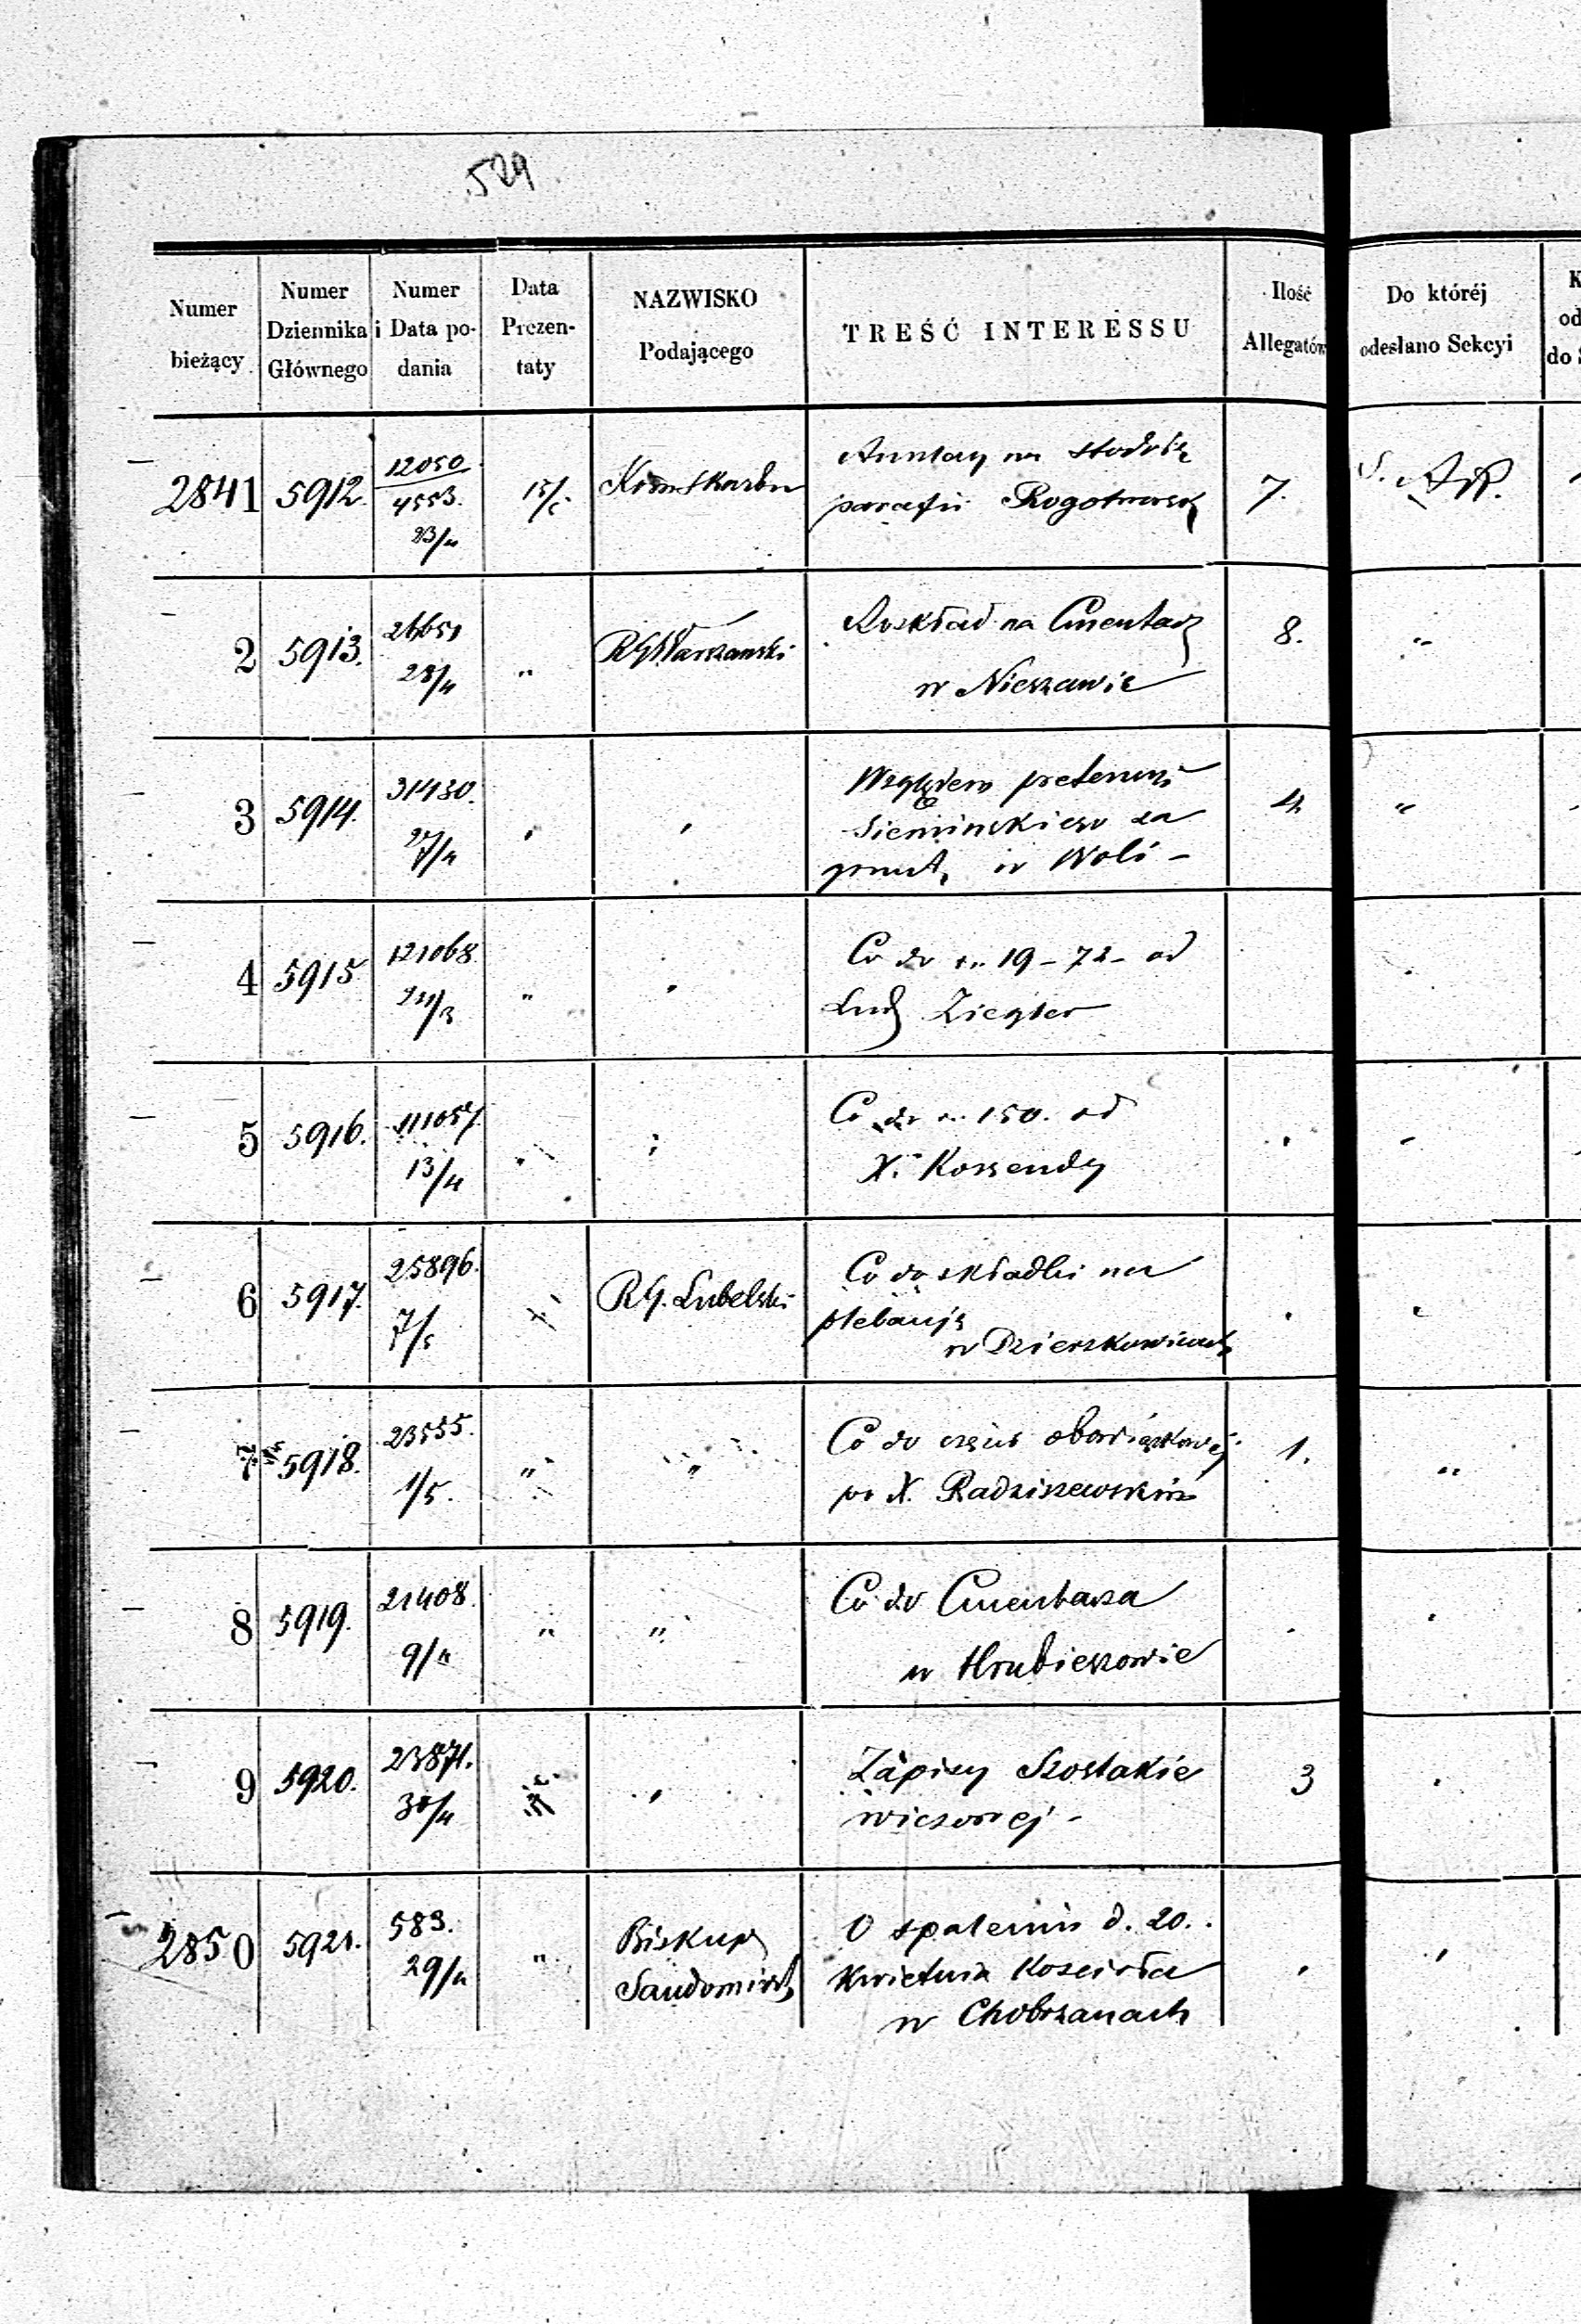 529
Numer bieżący
Numer Dziennika Głównego
Numer i Data podania
Data Prezentaty
NAZWISKO Podającego
TREŚĆ INTERESSU
Ilość Allegatów
Do któréj odesłano Sekcyi
2841 5912. 12050 4553. 23/4 15/5 Kom Skarbu
na stodołę
parafii 7.
2 5913. 28/4 " RG Warszawski
Rozkład na Cmentarz 8. "
w Nieszawie
3 5914. 31430. 27/4
Względem pretensyi 4. "
Siemińskiego za
grunt, w Woli –
4 5915 121068. "
Co do 19 – 72 – od
Ziegler
5 5916. 111057. 13/4
Co do 150. od
X. Kossendy
6 5917. 25896. 7/5 RG. Lubelski
Co do składki na
plebanję
w Dzierzkowicach
7 5918. 23555. 1/5. " "
Co do obowiązkowej 1. "
po X. Radziszewskim
8 5919. 21408. 9/4 " "
Co do Cmentarza
w Hrubieszowie
9 5920. 23871. 30/4
Zapisy Szostakie 3
wiczowej –
2850 5921. 583. 29/4 " Biskup
Sandomirsk
O spaleniu d. 20.
Kwietnia Kościoła
w Chobrzanach